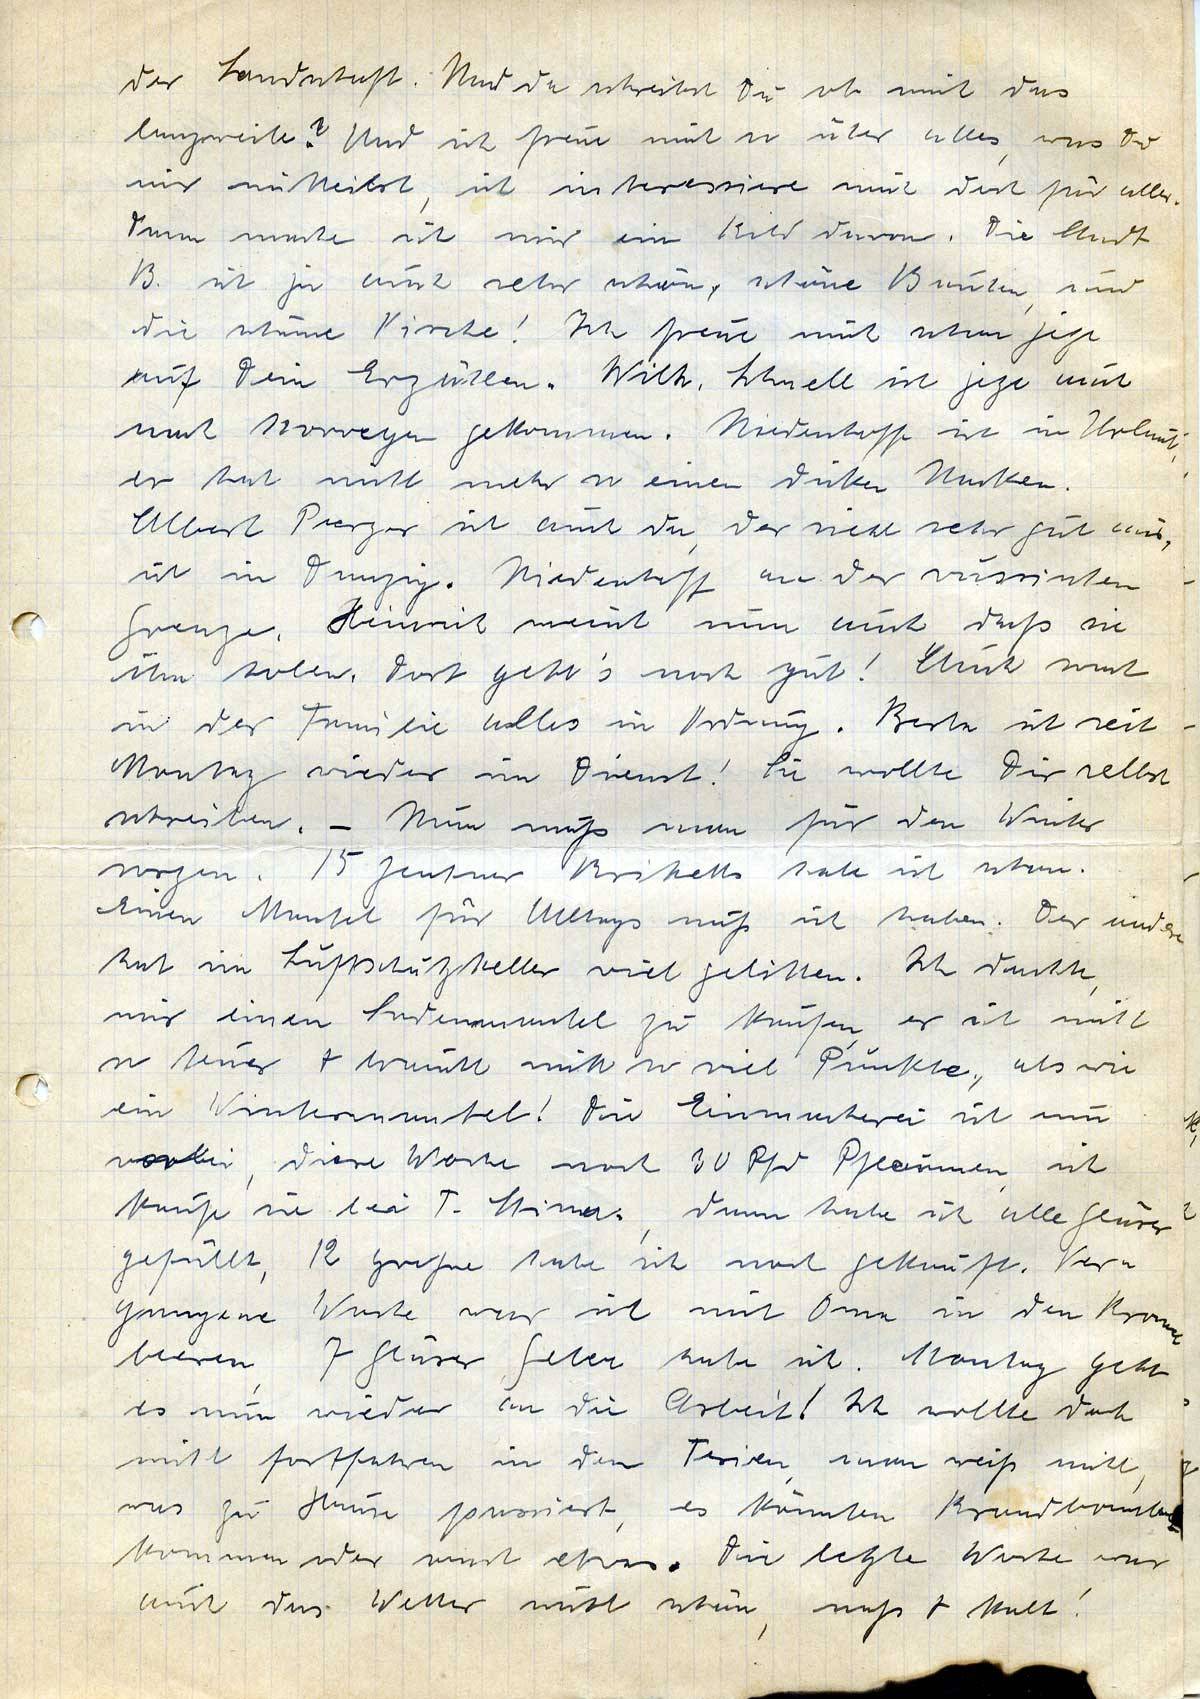 der Landschaft. Und da schreibst Du ob mich das
langweile? Und ich freue mich so über alles, was Du
mir mitteilst, ich interessiere mich doch für alles.
Dann mache ich mir ein Bild davon. Die Stadt
B. ist ja auch sehr schön, schöne Bauten, und
die schöne Kirche! Ich freue mich schon jetzt
auf Dein Erzählen. Wilh. Schnell ist jetzt auch
nach Norwegen gekommen. Niedenhoff ist in Urlaub,
er hat nicht mehr so einen dicken Nacken.
Albert Pierzer ist auch da, der sieht sehr gut aus,
ist in Danzig. Niedenhoff an der russischen
Grenze. Heinrich meint nun auch daß sie
ihn holen. Dort geht's noch gut! Auch sonst
in der Familie alles in Ordnung. Berta ist seit
Montag wieder im Dienst! Sie wollte Dir selbst
schreiben. – Nun muß man für den Winter
sorgen. 15 Zentner Briketts habe ich schon.
Einen Mantel für Alltags muß ich haben. Der andere
hat im Luftschutzkeller viel gelitten. Ich dachte,
mir einen Lodenmantel zu kaufen, er ist nicht
so teuer + braucht nicht so viel Punkte, als wie
ein Wintermantel! Die Einmacherei ist nun
vorbei, diese Woche noch 30 Pfd Pflaumen, ich
kaufe sie bei T. Mina, dann habe ich alle Gläser
gefüllt, 12 große habe ich noch gekauft. Ver
gangene Woche war ich mit Oma in den Brom
beeren, 7 Gläser Gelee habe ich. Montag geht
es nun wieder an die Arbeit! Ich wollte doch
nicht fortfahren in den Ferien, man weiß nicht,
was zu Hause passiert, es könnten Brandbomben
kommen oder sonst etwas. Die letzte Woche war
auch das Wetter nicht schön, naß + kalt!